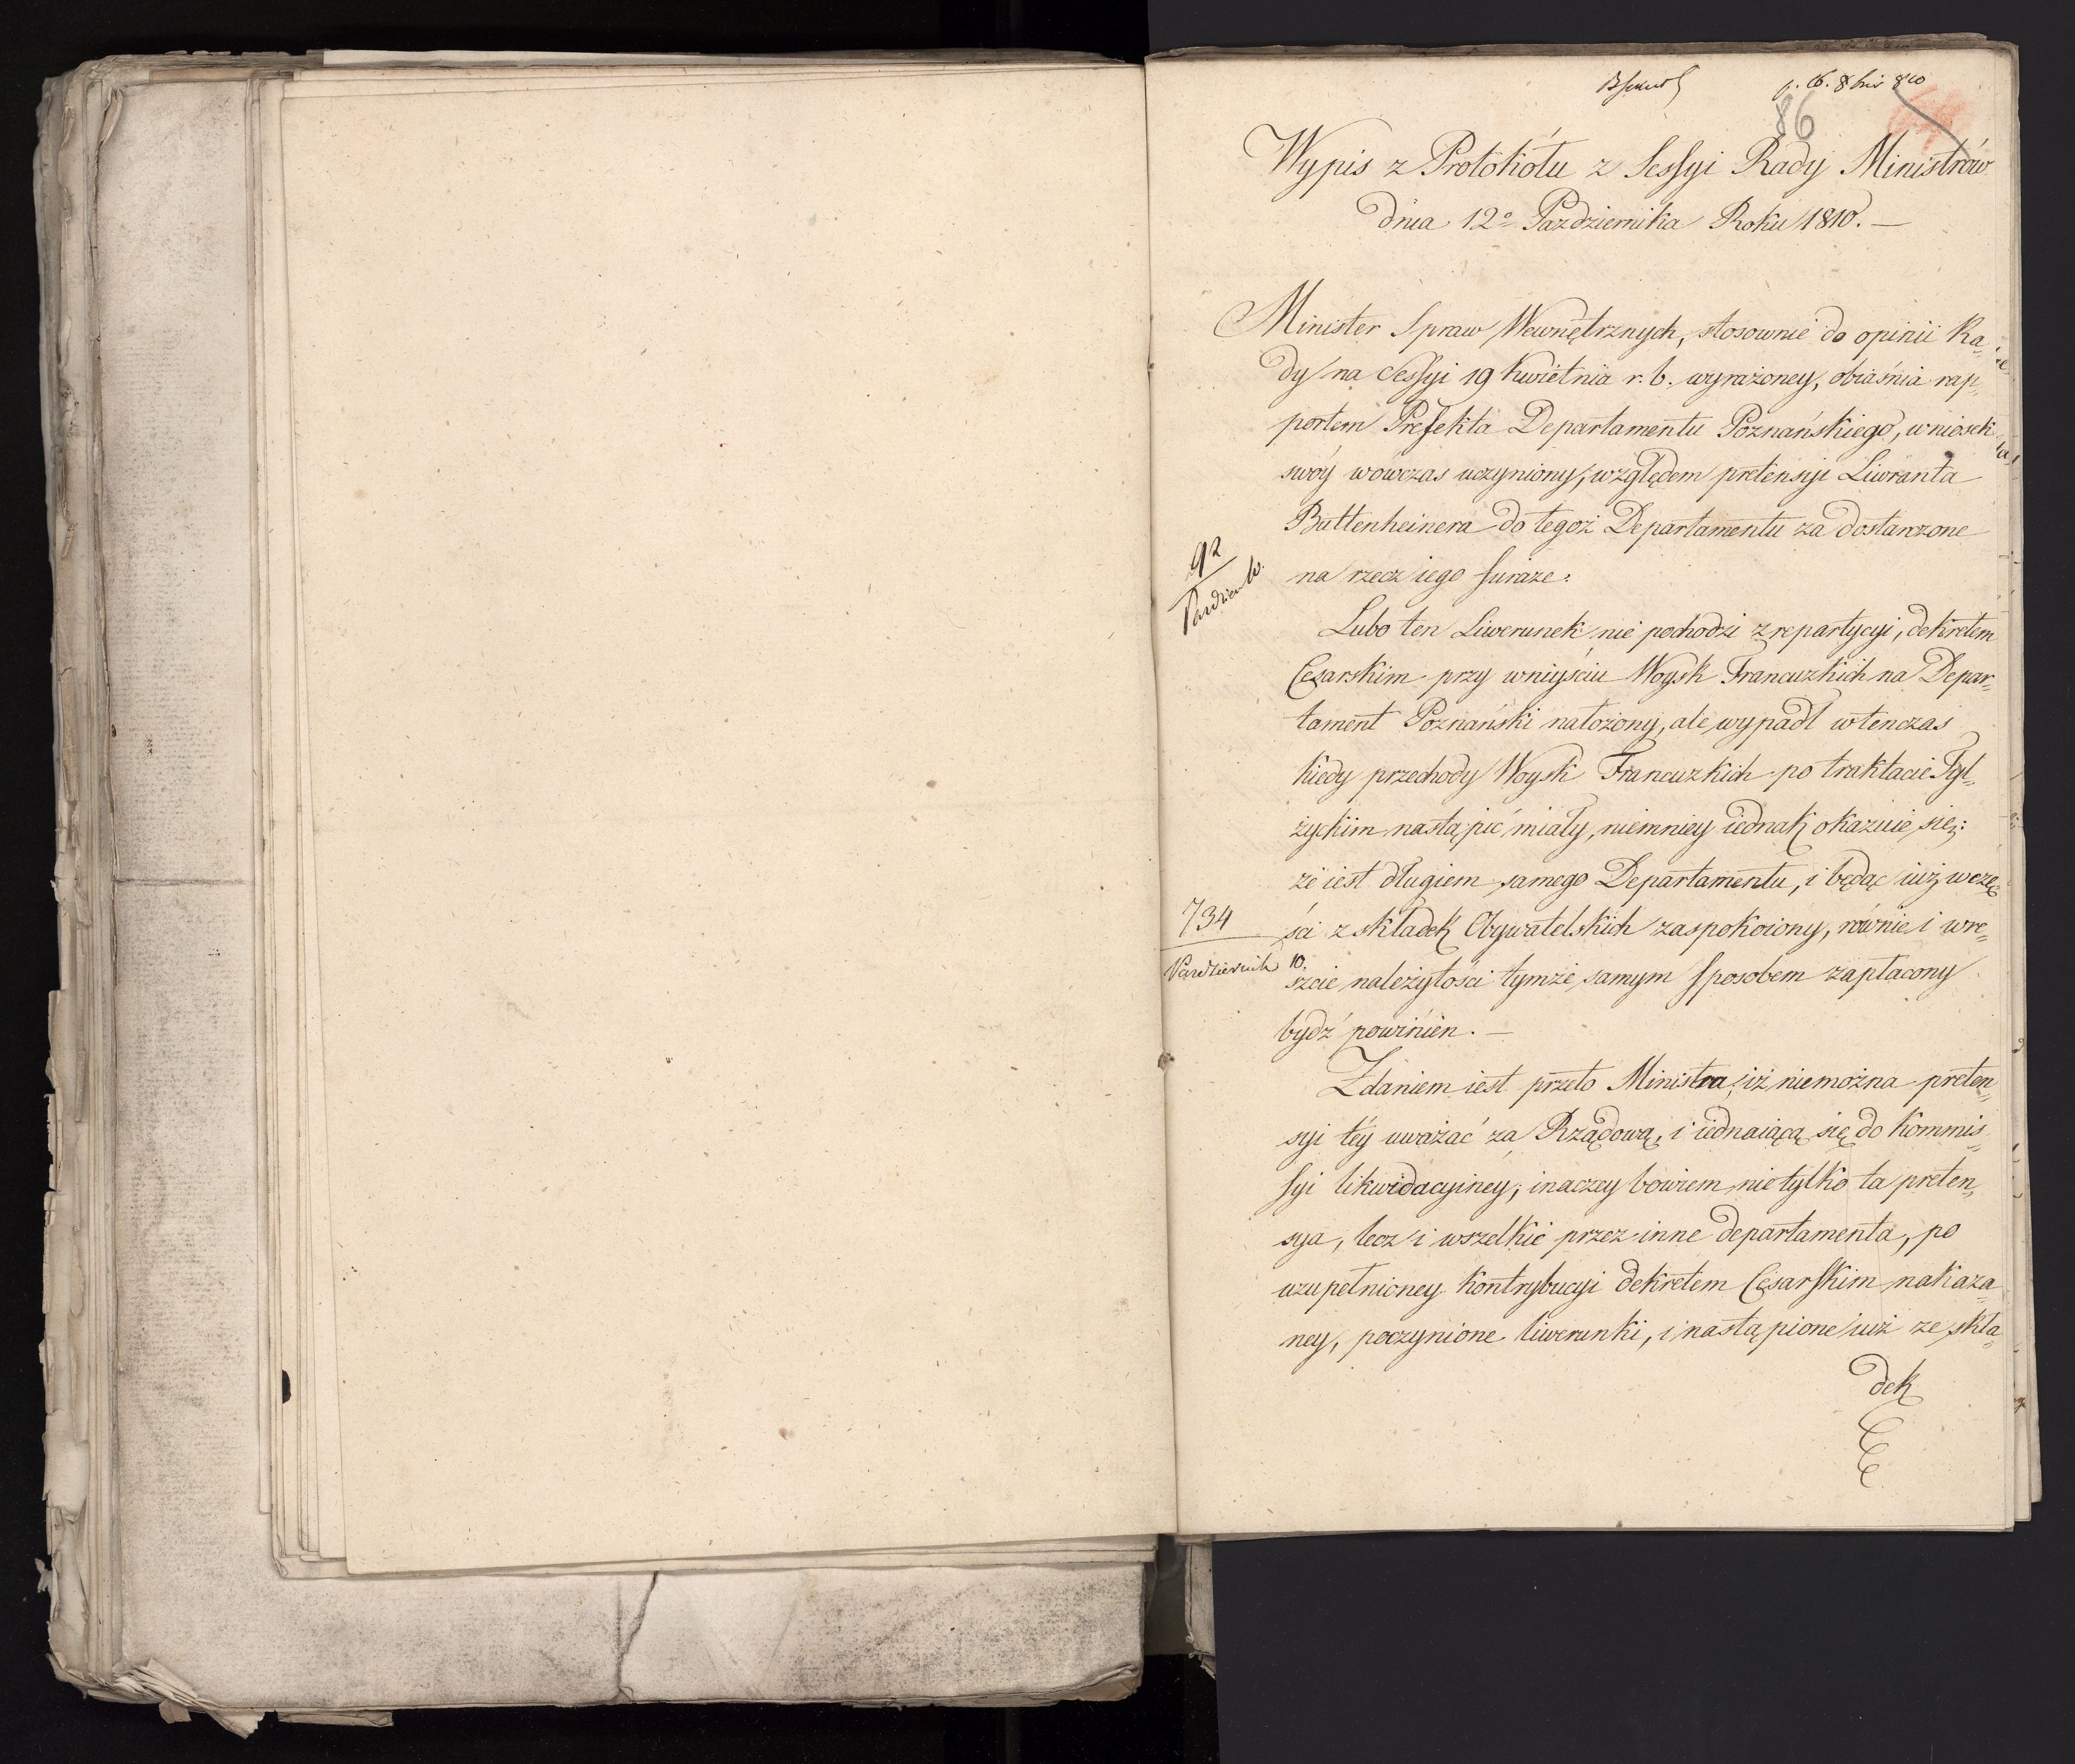 86
Wypis z Protokółu z Sessyi Rady Ministrów
dnia 12º Pazdziernika Roku 1810. —
Minister Spraw Wewnętrznych, stosownie do opinii Ra„
dy na Sessyi 19 Kwietnia r. b. wyrażoney, obiaśnia rap„
portem Prefekta Departamentu Poznańskiego, wniosek
swóy wówczas uczyniony, względem pretensyi Liwranta
Buttenheinera do tegoż Departamentu za dostarczone
na rzecz iego furaże:
92
Pazdziernik
Lubo ten Liwerunek nie pochodzi z repartycyi, dekretem
Cesarskim przy wniyściu Woysk Francuzkich na Depar„
tament Poznański nałożony, ale wypadł wtenczas
kiedy przechody Woysk Francuzkich po traktacie Tyl„
życkim nastąpić miały, niemniey iednak okazuie się:
że iest długiem samego Departamentu, i będąc iuż w czę
ści z składek Obywatelskich zaspokoiony, równie i w re„
szcie należytości tymże samym sposobem zapłacony
bydź powinien. —
734
Pazdziernik 10.
Zdaniem iest przeto Ministra, iż niemożna preten„
syi téy uważać za Rządową, i iednaiącą się do Kommis„
syi likwidacyiney, inaczey bowiem nietylko ta preten„
sya, lecz i wszelkie przez inne departamenta, po
uzupełnioney kontrybucyi dekretem Cesarskim nakaza„
ney, poczynione liwerunki, i nastąpione iuż ze skła„
dek